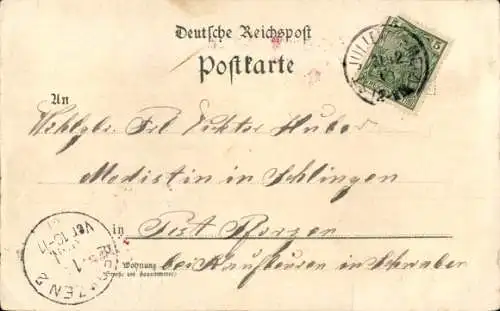 Deutsche Reichspost
Postkarte
An
Wohlgb. Frl. Viktor Huber
Modistin in Schlingen
in Post Pforzen
Wohnung
bei Kaufbeuren in Schwaben
(Straße und Hausnummer)
5 5